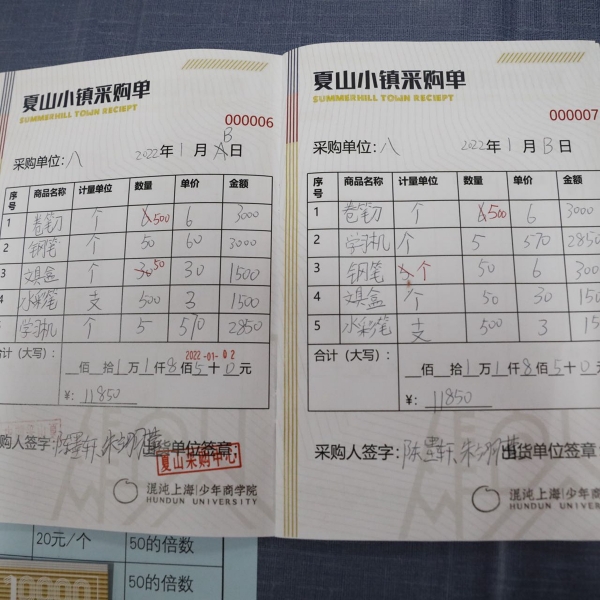 夏山小镇采购单
SUMMERHILL TOWN RECIEPT
000006
B
采购单位: 八 2022年1月A日
序号 商品名称 计量单位 数量 单价 金额
1 卷笔刀 个 500 6 3000
2 钢笔 个 50 60 3000
3 文具盒 个 50 30 1500
4 水彩笔 支 500 3 1500
学习机 个 5 570 2850
合计（大写）：
2022-01-02
佰 拾1万1仟8佰5十0元
¥: 11850
购人签字: 出货单位签章:
夏山采购中心
混沌上海|少年商学院
HUNDUN UNIVERSITY
夏山小镇采购单
SUMMERHILL TOWN RECIEPT
000007
采购单位: 八 2022年1月B日
序号 商品名称 计量单位 数量 单价 金额
1 卷笔刀 个 500 6 3000
2 学习机 个 5 570 2850
3 钢笔 个 50 6 300
4 文具盒 个 50 30 150
5 水彩笔 支 500 3 15
合计（大写）：
佰 拾1万1仟8佰5十0元
¥: 11850
采购人签字: 出货单位签章
混沌上海|少年商学院
HUNDUN UNIVERSITY
20元/个 50的倍数
50的倍数
10000